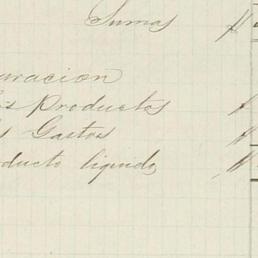 Sumas #
uracion
Productos #
Gastos #
ducto liquido #